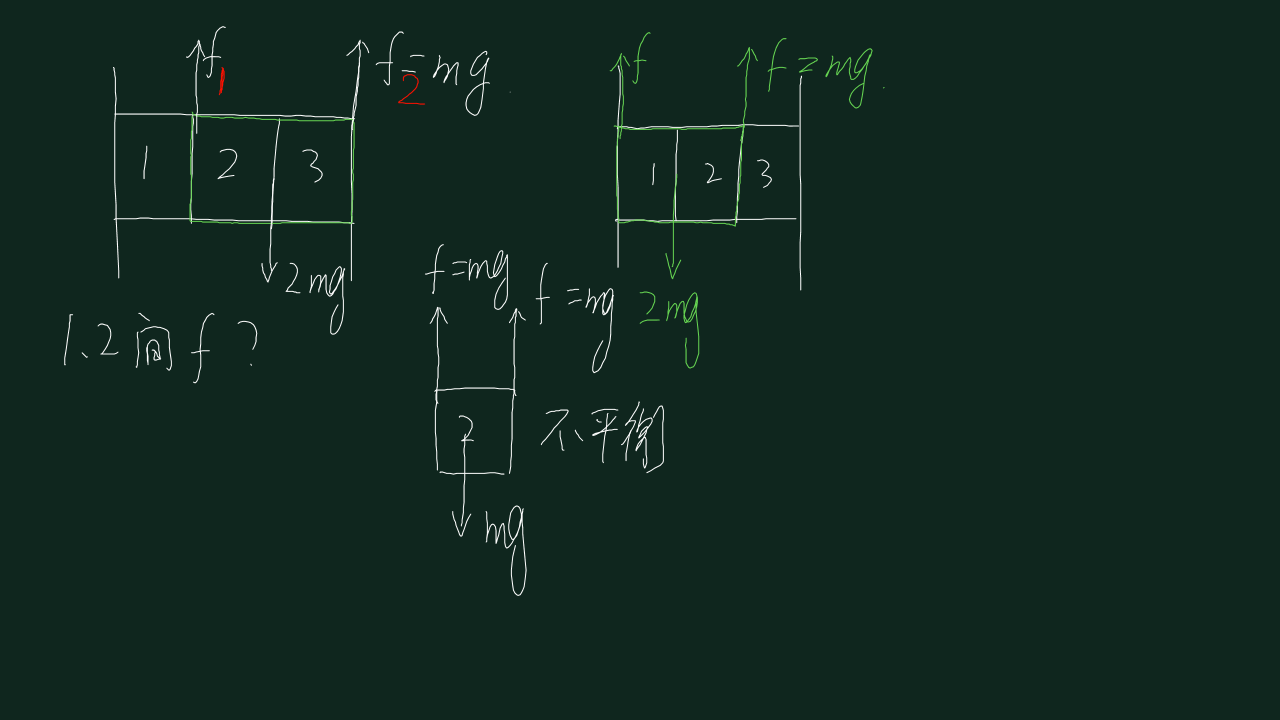 f1
f2=mg
1 2 3
2mg
1.2间f?
f
f=mg
1 2 3
2mg
f=mg
f=mg
2
不平衡
mg